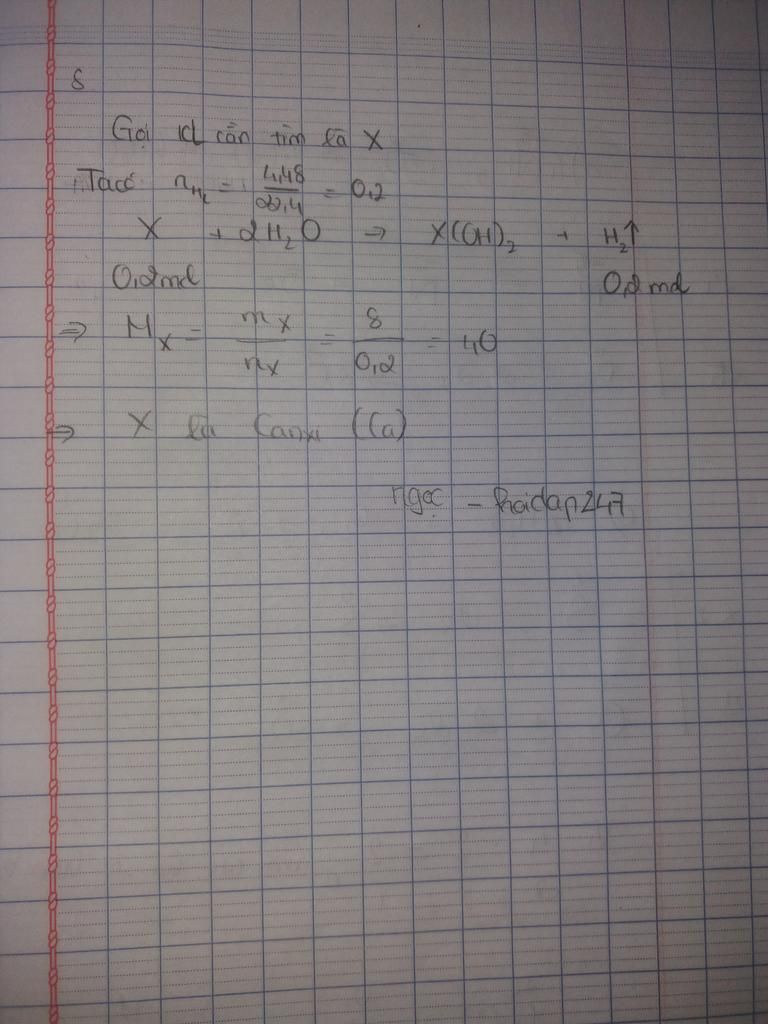 8
Gọi kl cần tìm là X
Ta có n_H₂ = 4,48/22,4 = 0,2
X + 2H₂O → X(OH)₂ + H₂↑
0,2mol 0,2mol
⇒ M_X = m_X/n_X = 8/0,2 = 40
⇒ X là Canxi (Ca)
ngọc - hoidap247